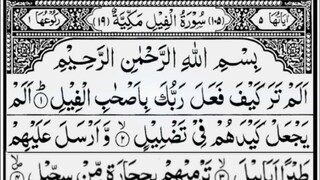 اٰيَاتُهَا ٥ (١٠٥) سُوْرَةُ الْفِيْلِ مَكِّيَّةٌ (١٩) رُكُوْعُهَا ١
بِسْمِ اللّٰهِ الرَّحْمٰنِ الرَّحِيْمِ
اَلَمْ تَرَ كَيْفَ فَعَلَ رَبُّكَ بِاَصْحٰبِ الْفِيْلِ ١ اَلَمْ
يَجْعَلْ كَيْدَهُمْ فِيْ تَضْلِيْلٍ ٢ وَّاَرْسَلَ عَلَيْهِمْ
طَيْرًا اَبَابِيْلَ ٣ تَرْمِيْهِمْ بِحِجَارَةٍ مِّنْ سِجِّيْلٍ ٤